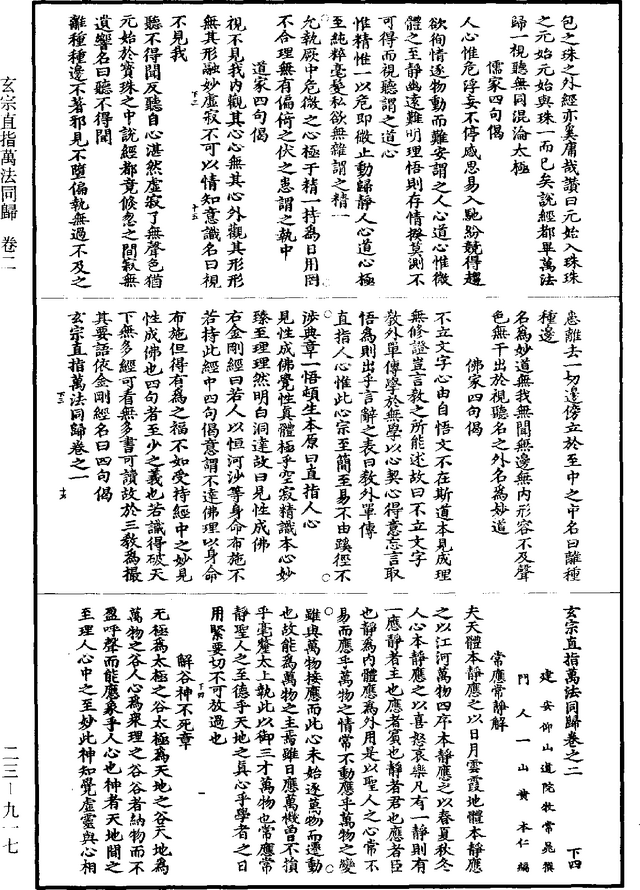 包之珠之外經亦奚庸哉讚曰元始入珠珠
之元始元始與珠一而已矣說經都畢萬法
歸一視聽無同混淪太極
儒家四句偈
人心惟危浮妄不停感思易入馳紛競得趨
欲徇情逐物動而難安謂之人心道心惟微
體之至靜幽遠難明理悟則存情撥莫測不
可得而視聽謂之道心
惟精惟一以危即微止動歸靜人心道心極
至純粹毫髮私欲無雜謂之精一
允執厥中危微之心極于精一持為日用罔
不合理無有偏倚之伏之患謂之執中
道家四句偈
視不見我內觀其心心無其心外觀其形形
無其形融妙虛寂不可以情知意識名曰視
不見我
聽不得聞反聽自心湛然虛寂了無聲色猶
元始於寶珠之中說經都竟倏忽之間寂無
遺響名曰聽不得聞
離種種邊不著邪見不墮偏執無過不及之
玄宗直指萬法同歸 卷二
患離去一切邊傍立於至中之中名曰離種
種邊
名為妙道無我無聞無邊無內形容不及聲
色無干出於視聽名之外名為妙道
佛家四句偈
不立文字心由自悟文不在斯道本見成理
無修證豈言教之所能述故曰不立文字
教外單傳學於無學以心契心得意忘言取
悟為則出乎言辭之表曰教外單傳
直指人心惟此心宗至簡至易不由蹊徑不
涉典章一悟頓生本原曰直指人心
見性成佛覺性真體極乎空寂精識本心妙
臻至理理然明白洞達故曰見性成佛
右金剛經曰若人以恒河沙等身命布施不
若持此經中四句偈意謂不達佛理以身命
布施但得有為之福不如受持經中之妙見
性成佛也四句者至少之義也若識得破天
下無多經可看無多書可讀故於三教為撮
其要語依金剛經名曰四句偈
玄宗直指萬法同歸卷之一
玄宗直指萬法同歸卷之二 下四
建安仰山道院牧常晁撰
門人一山黃本仁編
常應常靜解
夫天體本靜應之以日月雲霞地體本靜應
之以江河萬物四序本靜應之以春夏秋冬
人心本靜應之以喜怒哀樂凡有一靜則有
一應靜者主也應者賓也靜者君也應者臣
也靜為內體應為外用是以聖人之心常不
易而應乎萬物之情常不動應乎萬物之變
雖與萬物接應而此心未始逐萬物而遷動
也故能為萬物之主焉雖日應萬機曾不損
乎毫釐太上執此以御三才萬物也常應常
靜聖人之至德乎天地之真心乎學者之日
用緊要切不可放過也
解谷神不死章
无極為太極之谷太極為天地之谷天地為
萬物之谷人心為眾理之谷谷者納物而不
盈呼聲而能應象乎人心也神者天地間之
至理人心中之至妙此神知覺虛靈與心相
二三—九一七